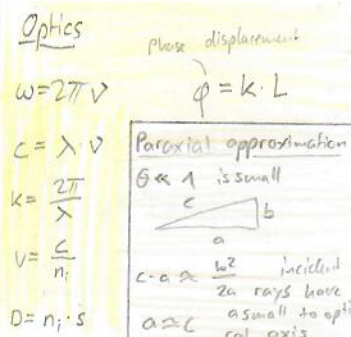 Optics
phase displacement
ω=2πν
φ=k·L
c=λ·ν
k=2π/λ
v=c/nᵢ
D=nᵢ·s
Paraxial approximation
θ≪1 is small
c
b
a
c-a≈b²/2a incident rays have
a≃c a small to opti
cal axis